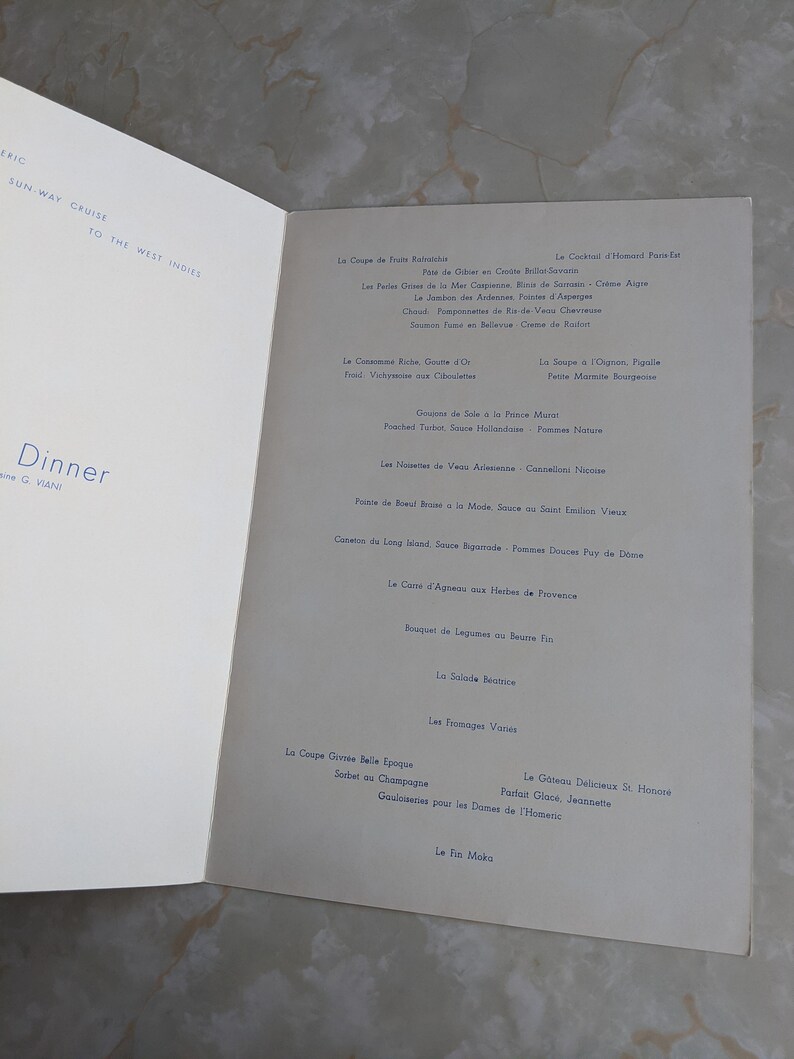 ERIC
SUN-WAY CRUISE
TO THE WEST INDIES
Dinner
sine G. VIANI
La Coupe de Fruits Rafraîchis Le Cocktail d'Homard Paris-Est
Pâte de Gibier en Croûte Brillat-Savarin
Les Perles Grises de la Mer Caspienne, Blinis de Sarrasin - Crème Aigre
Le Jambon des Ardennes, Pointes d'Asperges
Chaud: Pomponnettes de Ris-de-Veau Chevreuse
Saumon Fumé en Bellevue - Creme de Raifort
Le Consommé Riche, Goutte d'Or La Soupe à l'Oignon, Pigalle
Froid: Vichyssoise aux Ciboulettes Petite Marmite Bourgeoise
Goujons de Sole à la Prince Murat
Poached Turbot, Sauce Hollandaise - Pommes Nature
Les Noisettes de Veau Arlesienne - Cannelloni Niçoise
Pointe de Boeuf Braisé a la Mode, Sauce au Saint Emilion Vieux
Caneton du Long Island, Sauce Bigarrade - Pommes Douces Puy de Dôme
Le Carré d'Agneau aux Herbes de Provence
Bouquet de Legumes au Beurre Fin
La Salade Béatrice
Les Fromages Variés
La Coupe Givrée Belle Epoque Le Gâteau Délicieux St. Honoré
Sorbet au Champagne Parfait Glacé, Jeannette
Gauloiseries pour les Dames de l'Homeric
Le Fin Moka